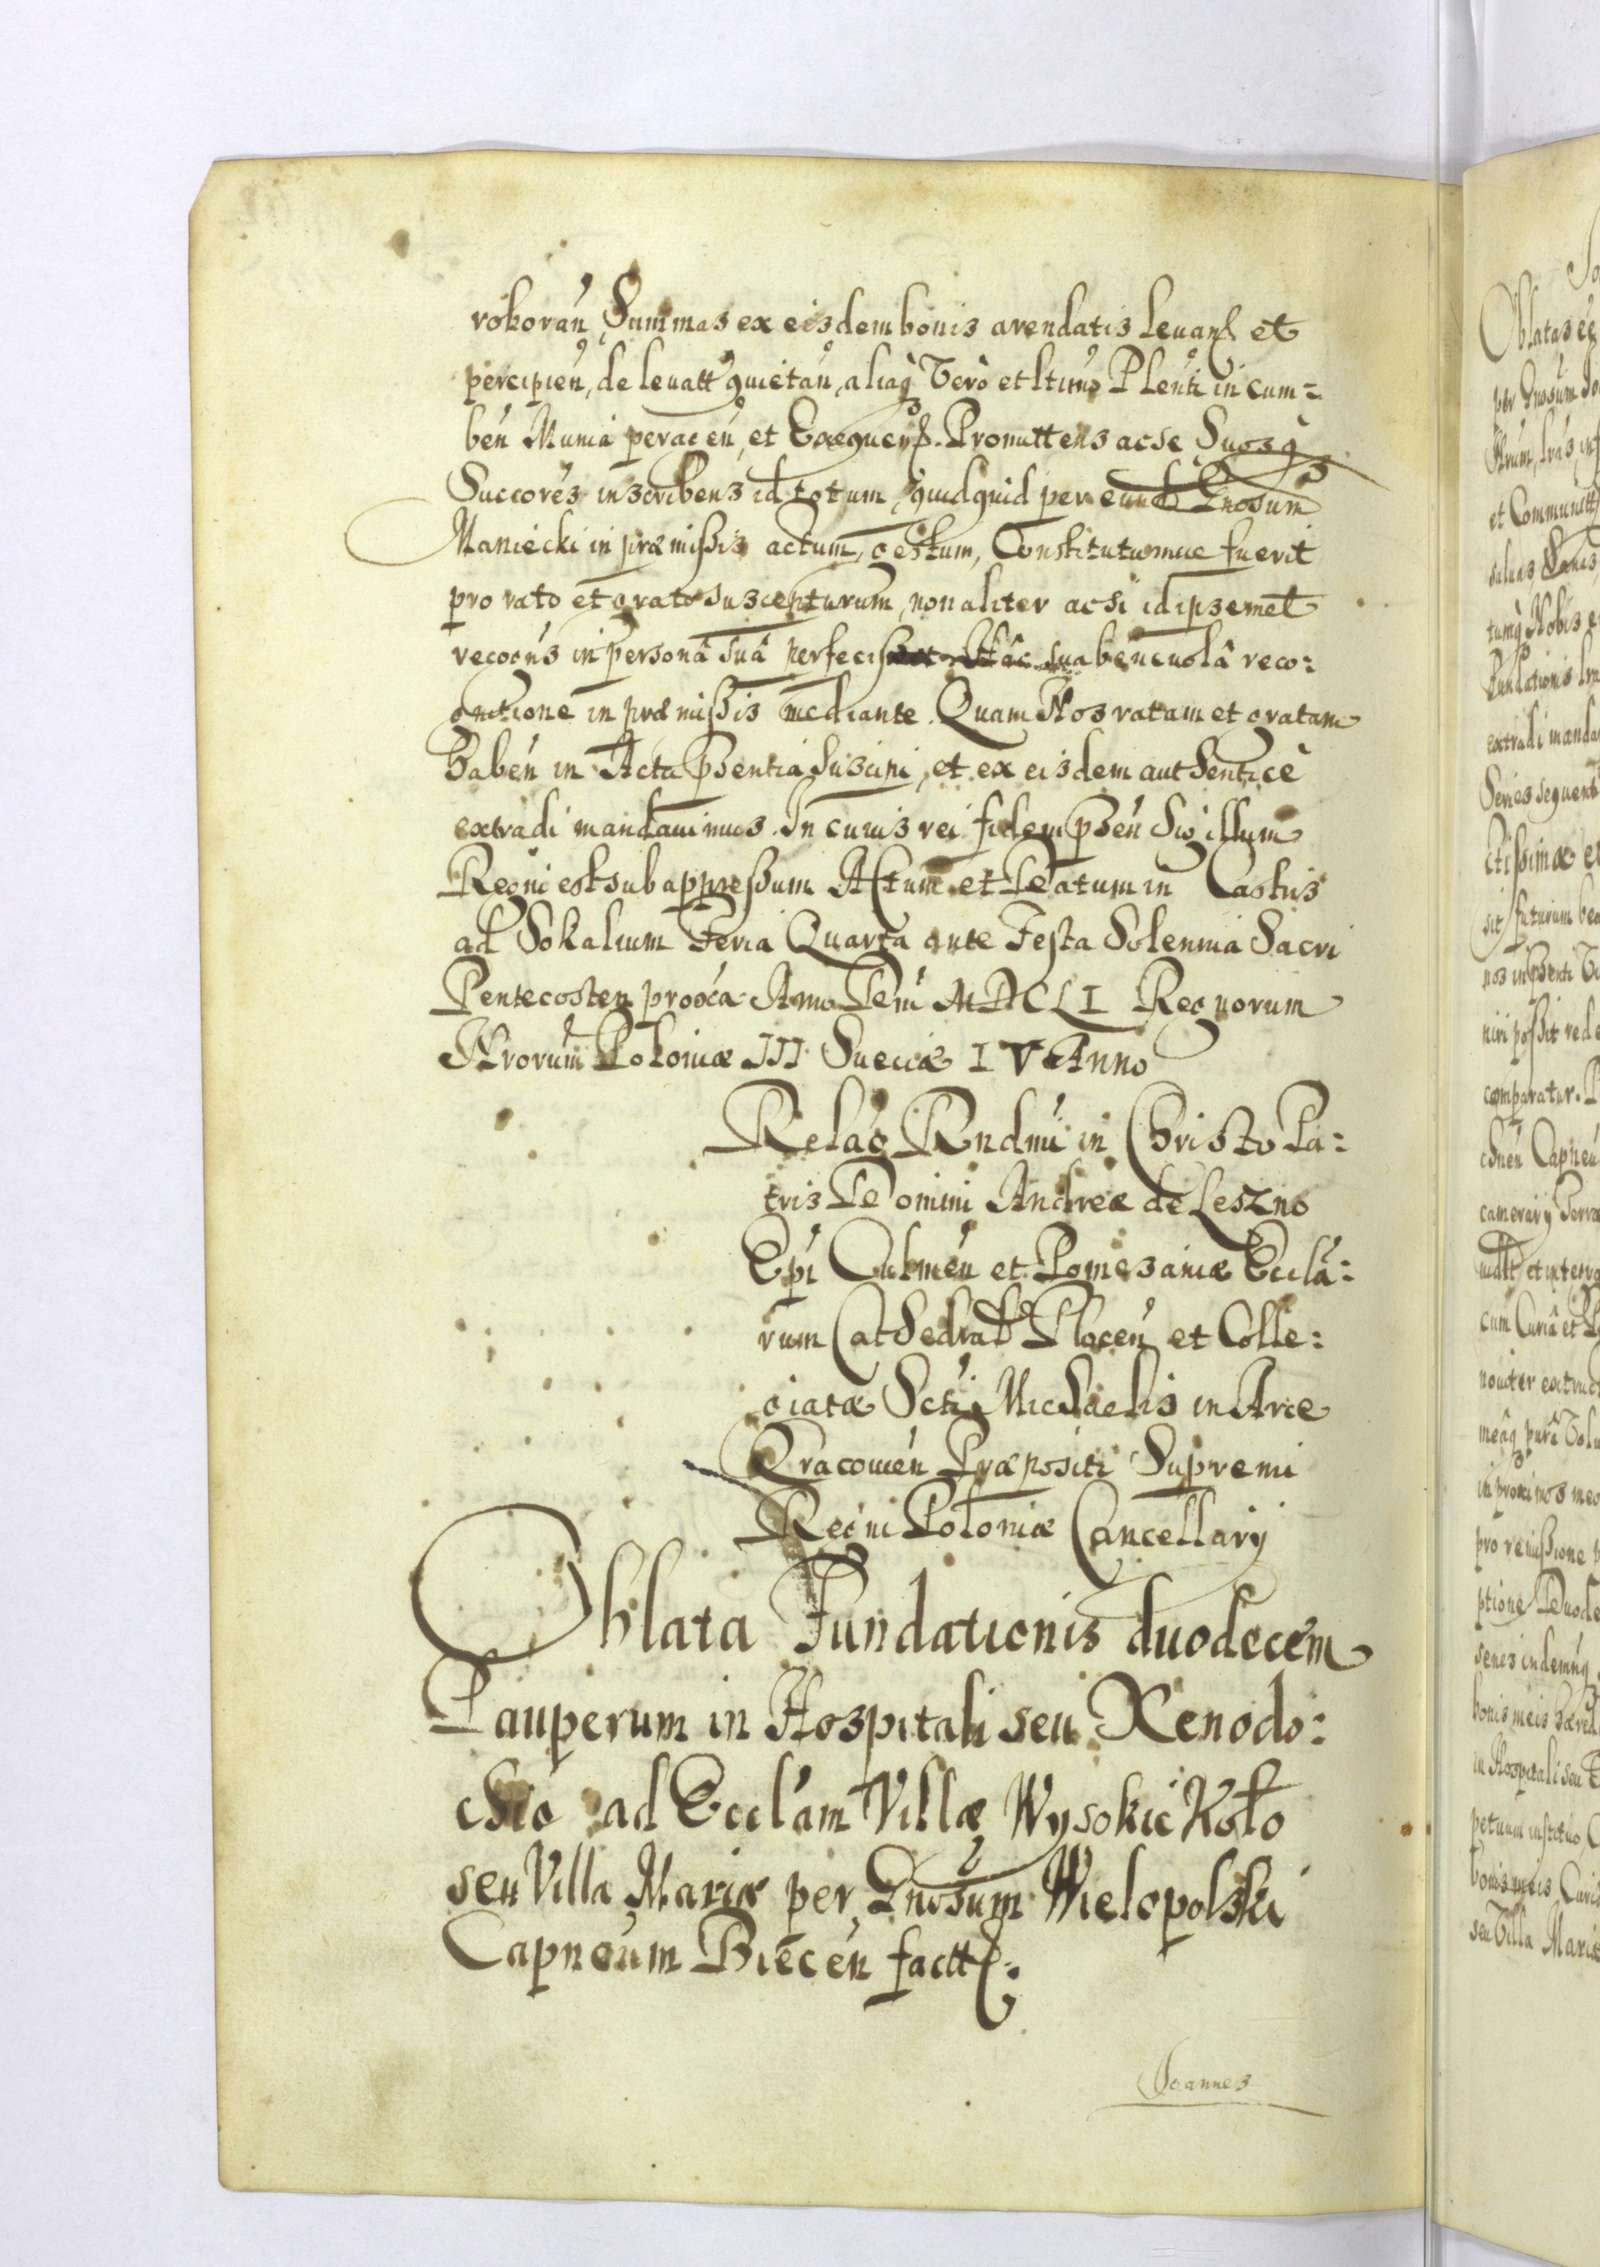 rokorań Summas ex eisdem bonis arendatis levan et
percipien, de levatt quietań, aliaq Vero et ltimo Plenti incum=
beń Munia peragen, et Exequen. Promittens ac se Suosq
Succores inscribens id totum, quidquid per eund Gnosum
Maniecki in præmissis actum, gestum, Constitutumue fuerit
pro rato et grato suscepturum, non aliter ac si id ipsemet
recogns in personâ suâ perfecisset hâc sua beneuolâ reco=
gnitione in præmissis mediante. Quam Nos ratam et gratam
habeń in Acta psentia suscipi, et ex eisdem authenticè
extradi mandauimus. In cuius rei fidem pseń Sigillum
Regni est subappressum Actum et Datum in Castris
ad Sokalium Feria Quarta ante Festa Solennia Sacri
Pentecosten proxa Anno Dni MDCLI Regnorum
Nrorum Poloniæ III Sueciæ IV Anno
Relao Rndmi in Christo Pa=
tris Domini Andreæ de Leszno
Epi Culmeń et Pomesaniæ Ecclā=
rum Cathedral Ploceń et Colle=
giatæ Scti Michaelis in Arce
Cracouień Præpositi Supremi
Regni Poloniæ Cancellarij
Oblata Fundationis duodecem
Pauperum in Hospitali seu Xenodo=
chio ad Ecclam Villæ Wysokie Koło
seu Villa Mariæ per Gnosum Wielopolski
Capneum Bieceń factt:
Joannes
Oblatas
per Gnosum
et Communitt
saluas
tumq Nobis
Fundationis
extradi manda
Series sequent
ctissimæ et
sit futurum
nos in psenti
niri possit
comparatur.
Capneu
camerarij Terræ
cum Curia et
nouiter extruct
meâq purâ
in proximos meo
pro remissione
ptione Duode
bonis meis
in Hospitali seu
petuum instituo,
bonis meis, Curi
seu Villa Mariæ